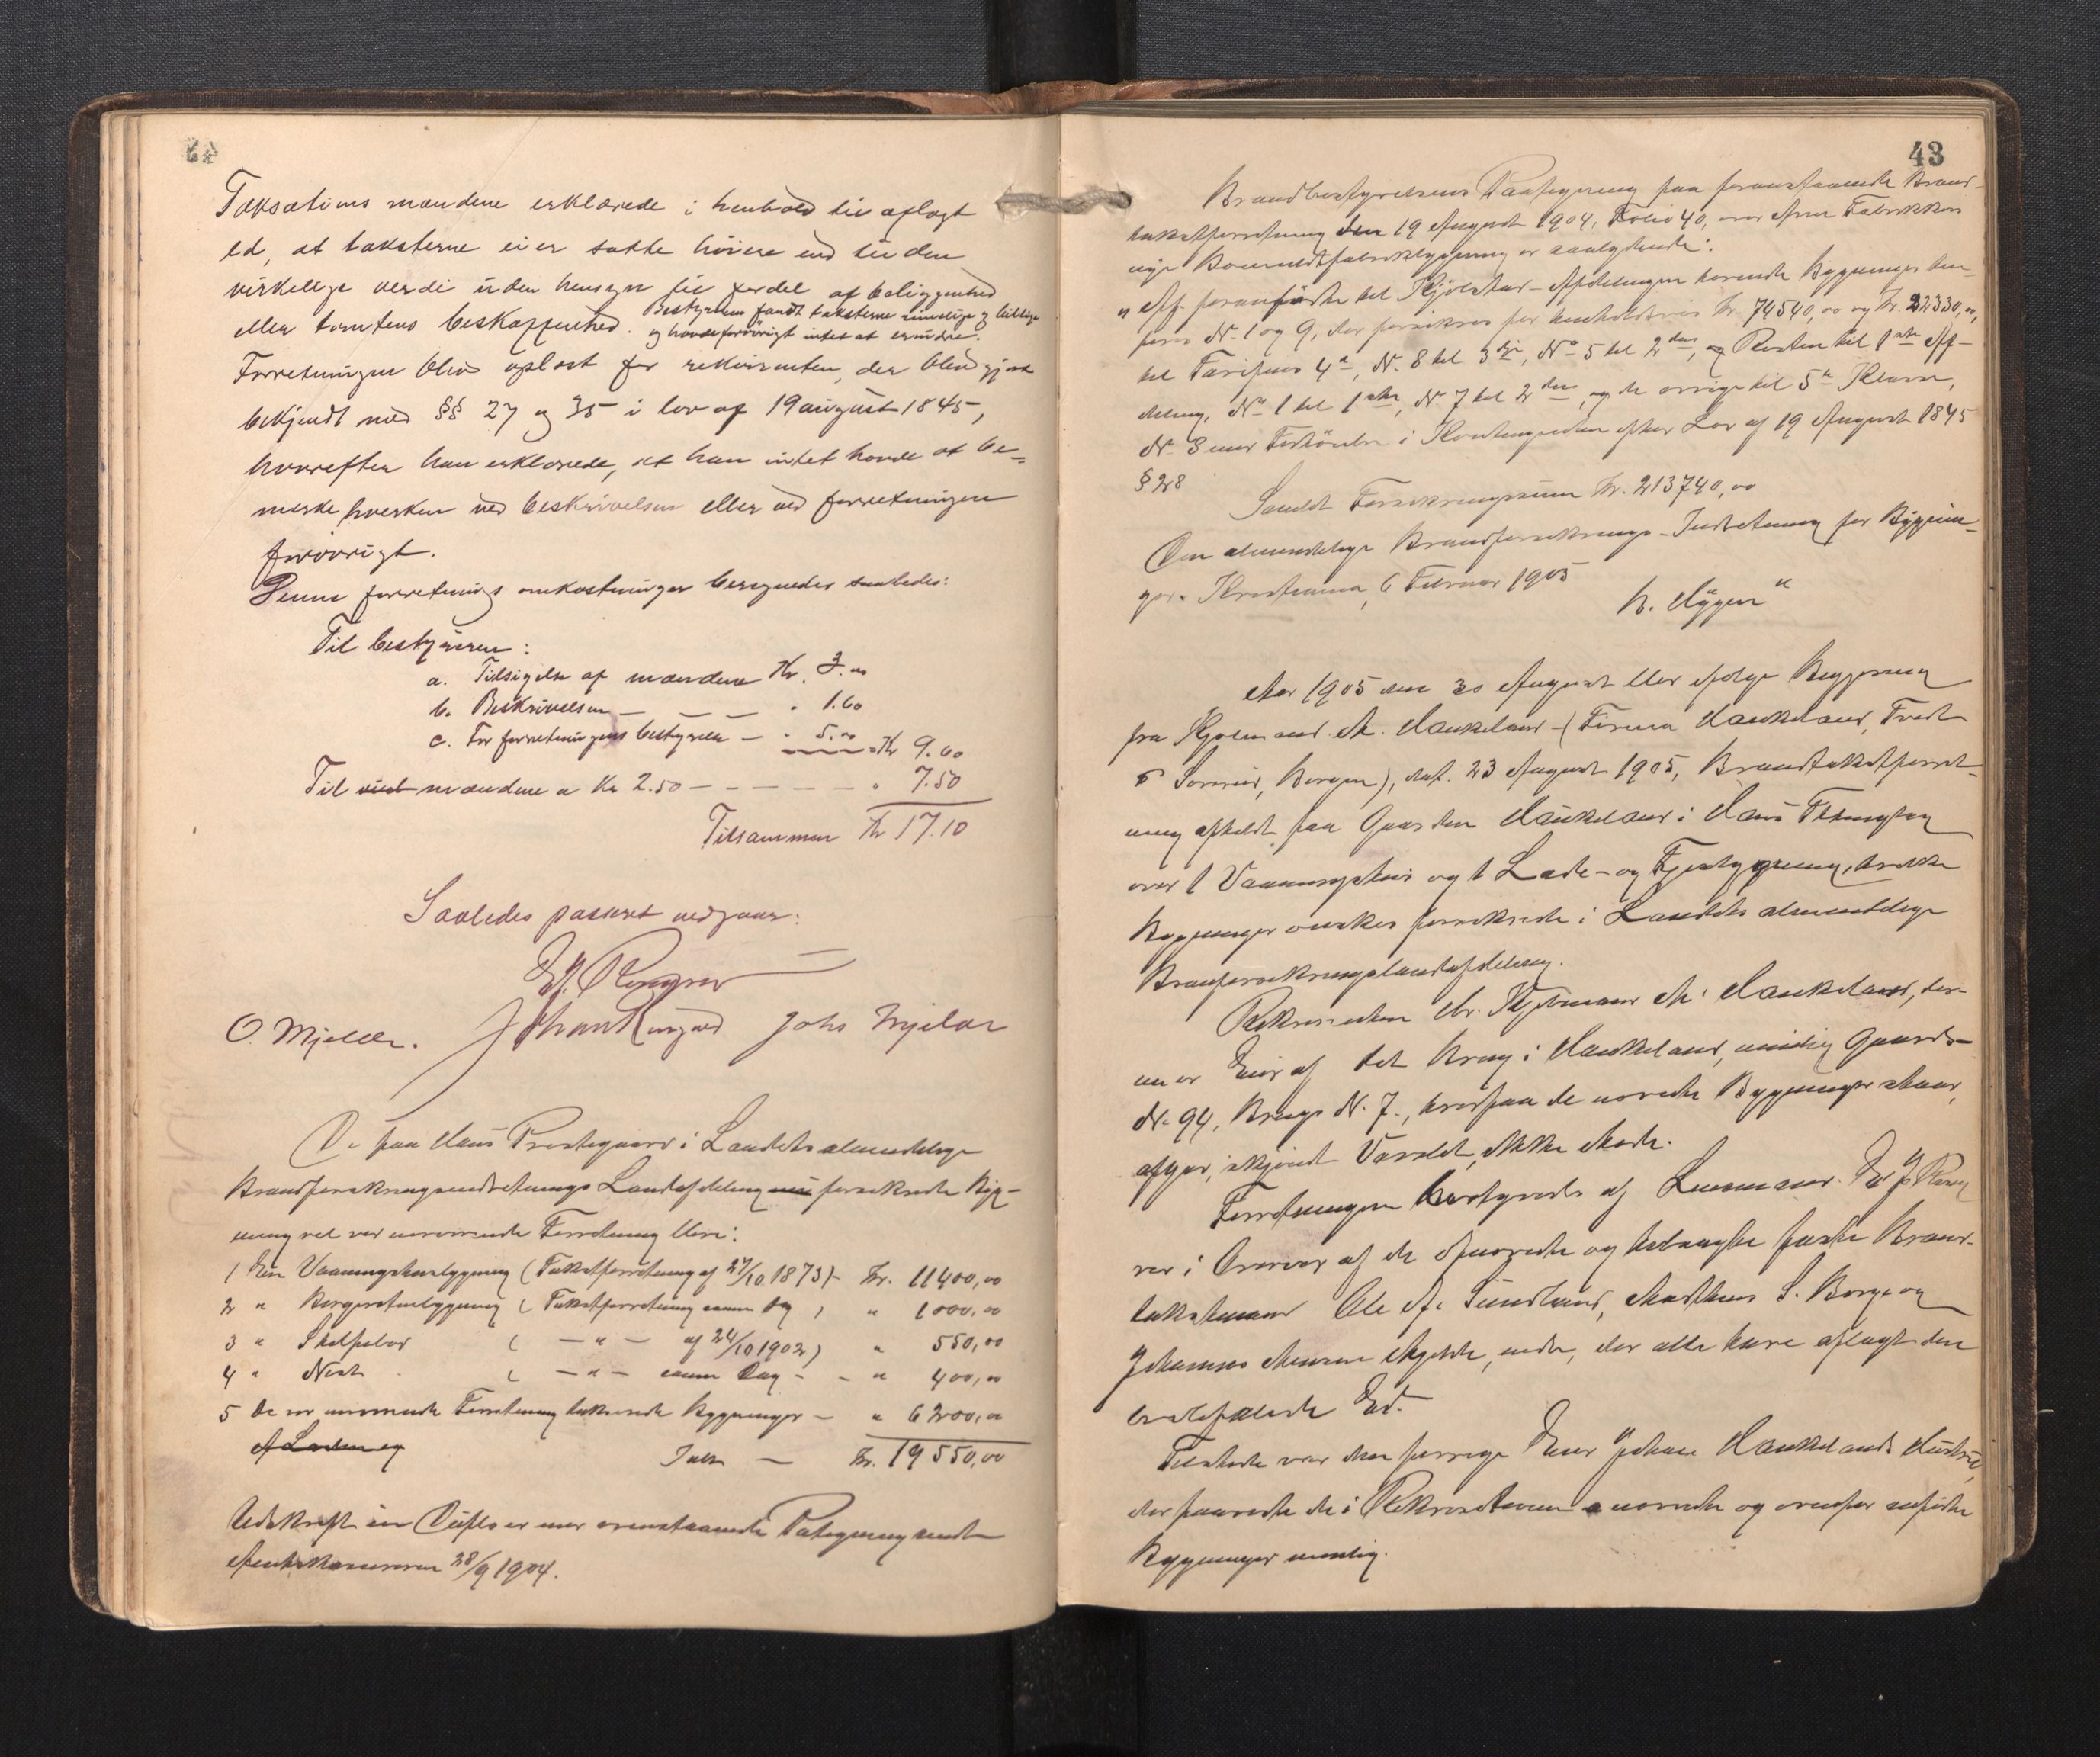 Taksations mændene erklærede i henhold til aflagt
ed, at taksterne ei er satte høiere end til den
virkelige verdi uden hensyn til fordel af beliggenhed
eller tomtens beskaffenhed. Bestyreren fandt taksterne rimelige og billige
og havde forövrigt intet at erindre.
Forretningen blev oplæst for rekvirenten, der blev gjort
bekjendt med §§ 27 og 35 i lov af 19 august 1845,
hvorefter han erklærede, at han intet havde at be-
merke hverken ved beskrivelsen eller ved forretningen
forövrigt.
Denne forretnings omkostninger beregnedes saaledes:
Til bestyreren:
a. Tilsigelse af mændene Kr. 3.00
b. Beskrivelsen — — — " 1.60
c. For forretningens bestyrelse — " 5.00 = Kr 9.60
Til mændene a Kr 2.50 — — — — — " 7.50
Tilsammen Kr 17.10
Saaledes passeret vedgaaes:
O. Mjelde. Johs Mjelde
De paa Haus Prestegaard i Landets almindelige
Brandforsikringsindretnings Landafdeling forsikrede Byg-
ning vil ved nærværende Forretning blive:
1 Een Vaaningshusbygning (Takstforretning af 27/10 1873) - Kr. 11400,00
2 " Borgestuebygning (Takstforretning samme Dag) " 1000,00
3 " Stolpebod ( — " — af 24/10 1902) " 550,00
4 " Nøst ( — " — samme Dag - - " 400,00
5 De ved nærværende Forretning takserede Bygninger — " 6200,00
Tils. — Kr. 19550,00
Udskrift in Duplo er med ovenstaaende Paategning sendt
Amtskassereren 28/9 1904.
43
Brandbestyrelsens Paategning paa foranstaaende Brand-
takstforretning den 19 August 1904, Folio 40, over Arne Fabrikkers
nye Bomuldsfabrikbygning er saalydende:
"Af foranførte til Kjøbstad-Afdelingen hørende Bygninger hen-
føres No 1 og 9, der forsikres for henholdsvis Kr. 74540,00 og Kr. 22330,00,
til Tarifens 4de, No 8 til 3die, No 5 til 2den, og Resten til 1ste Af-
deling, No 1 til 1ste, No 7 til 2den, og de øvrige til 5te Klasse,
No 3 med Forhöielse i Kontingenten efter Lov af 19 August 1845
§ 28
Samlet Forsikringssum Kr. 213740,00
Den almindelige Brandforsikrings-Indretning for Bygnin-
ger. Kristiania, 6 Februar 1905
Aar 1905 den 30 August blev ifølge Begjæring
fra Hjelmand A. Haukeland (Firma Haukeland, Tvedt
& Soreid, Bergen), dat. 23 August 1905, Brandtakstforret-
ning afholdt paa Gaarden Haukeland i Haus Thinglag
over 1 Vaaningshus og 1 Lade- og Fjøsbygning, hvilke
Bygninger ønskes forsikrede i Landets almindelige
Brandforsikringslandafdeling.
Rekvirenten Hr. Hjelmand A. Haukeland, den
nu er Eier af det Brug i Haukeland, nemlig Gaards-
No 94, Brugs No 7, hvorpaa de nævnte Bygninger staar,
afgav, skjøndt Varslet, ikke Møde.
Forretningen bestyredes af Lensmand
ved i Overvær af de opnævnte og tilsagte faste Brand-
takstmænd Ole A. Sundland, Mathias S. Borge og
Johannes Monsen Mjelde, nedre, der alle have aflagt den
befalede Ed.
Tilstede var den forrige Eier Johan Haukelands Hustru,
der paaviste de i Rekvisitionen nævnte og ovenfor anførte
Bygninger nemlig: